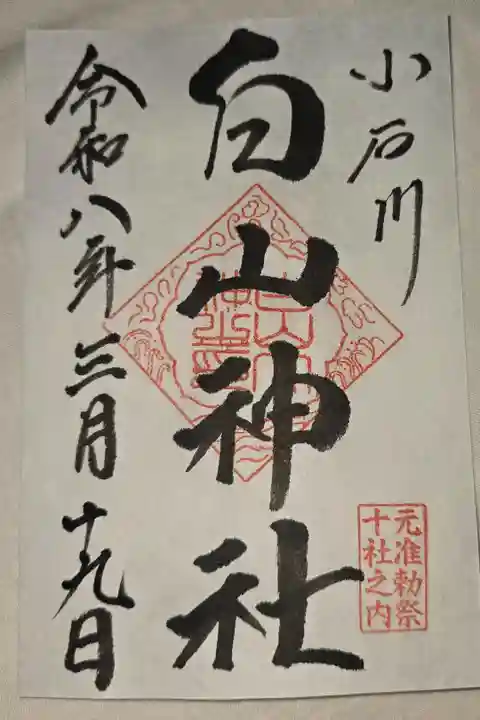 小石川
元准勅祭
十社之内
白山神社
令和八年三月十九日